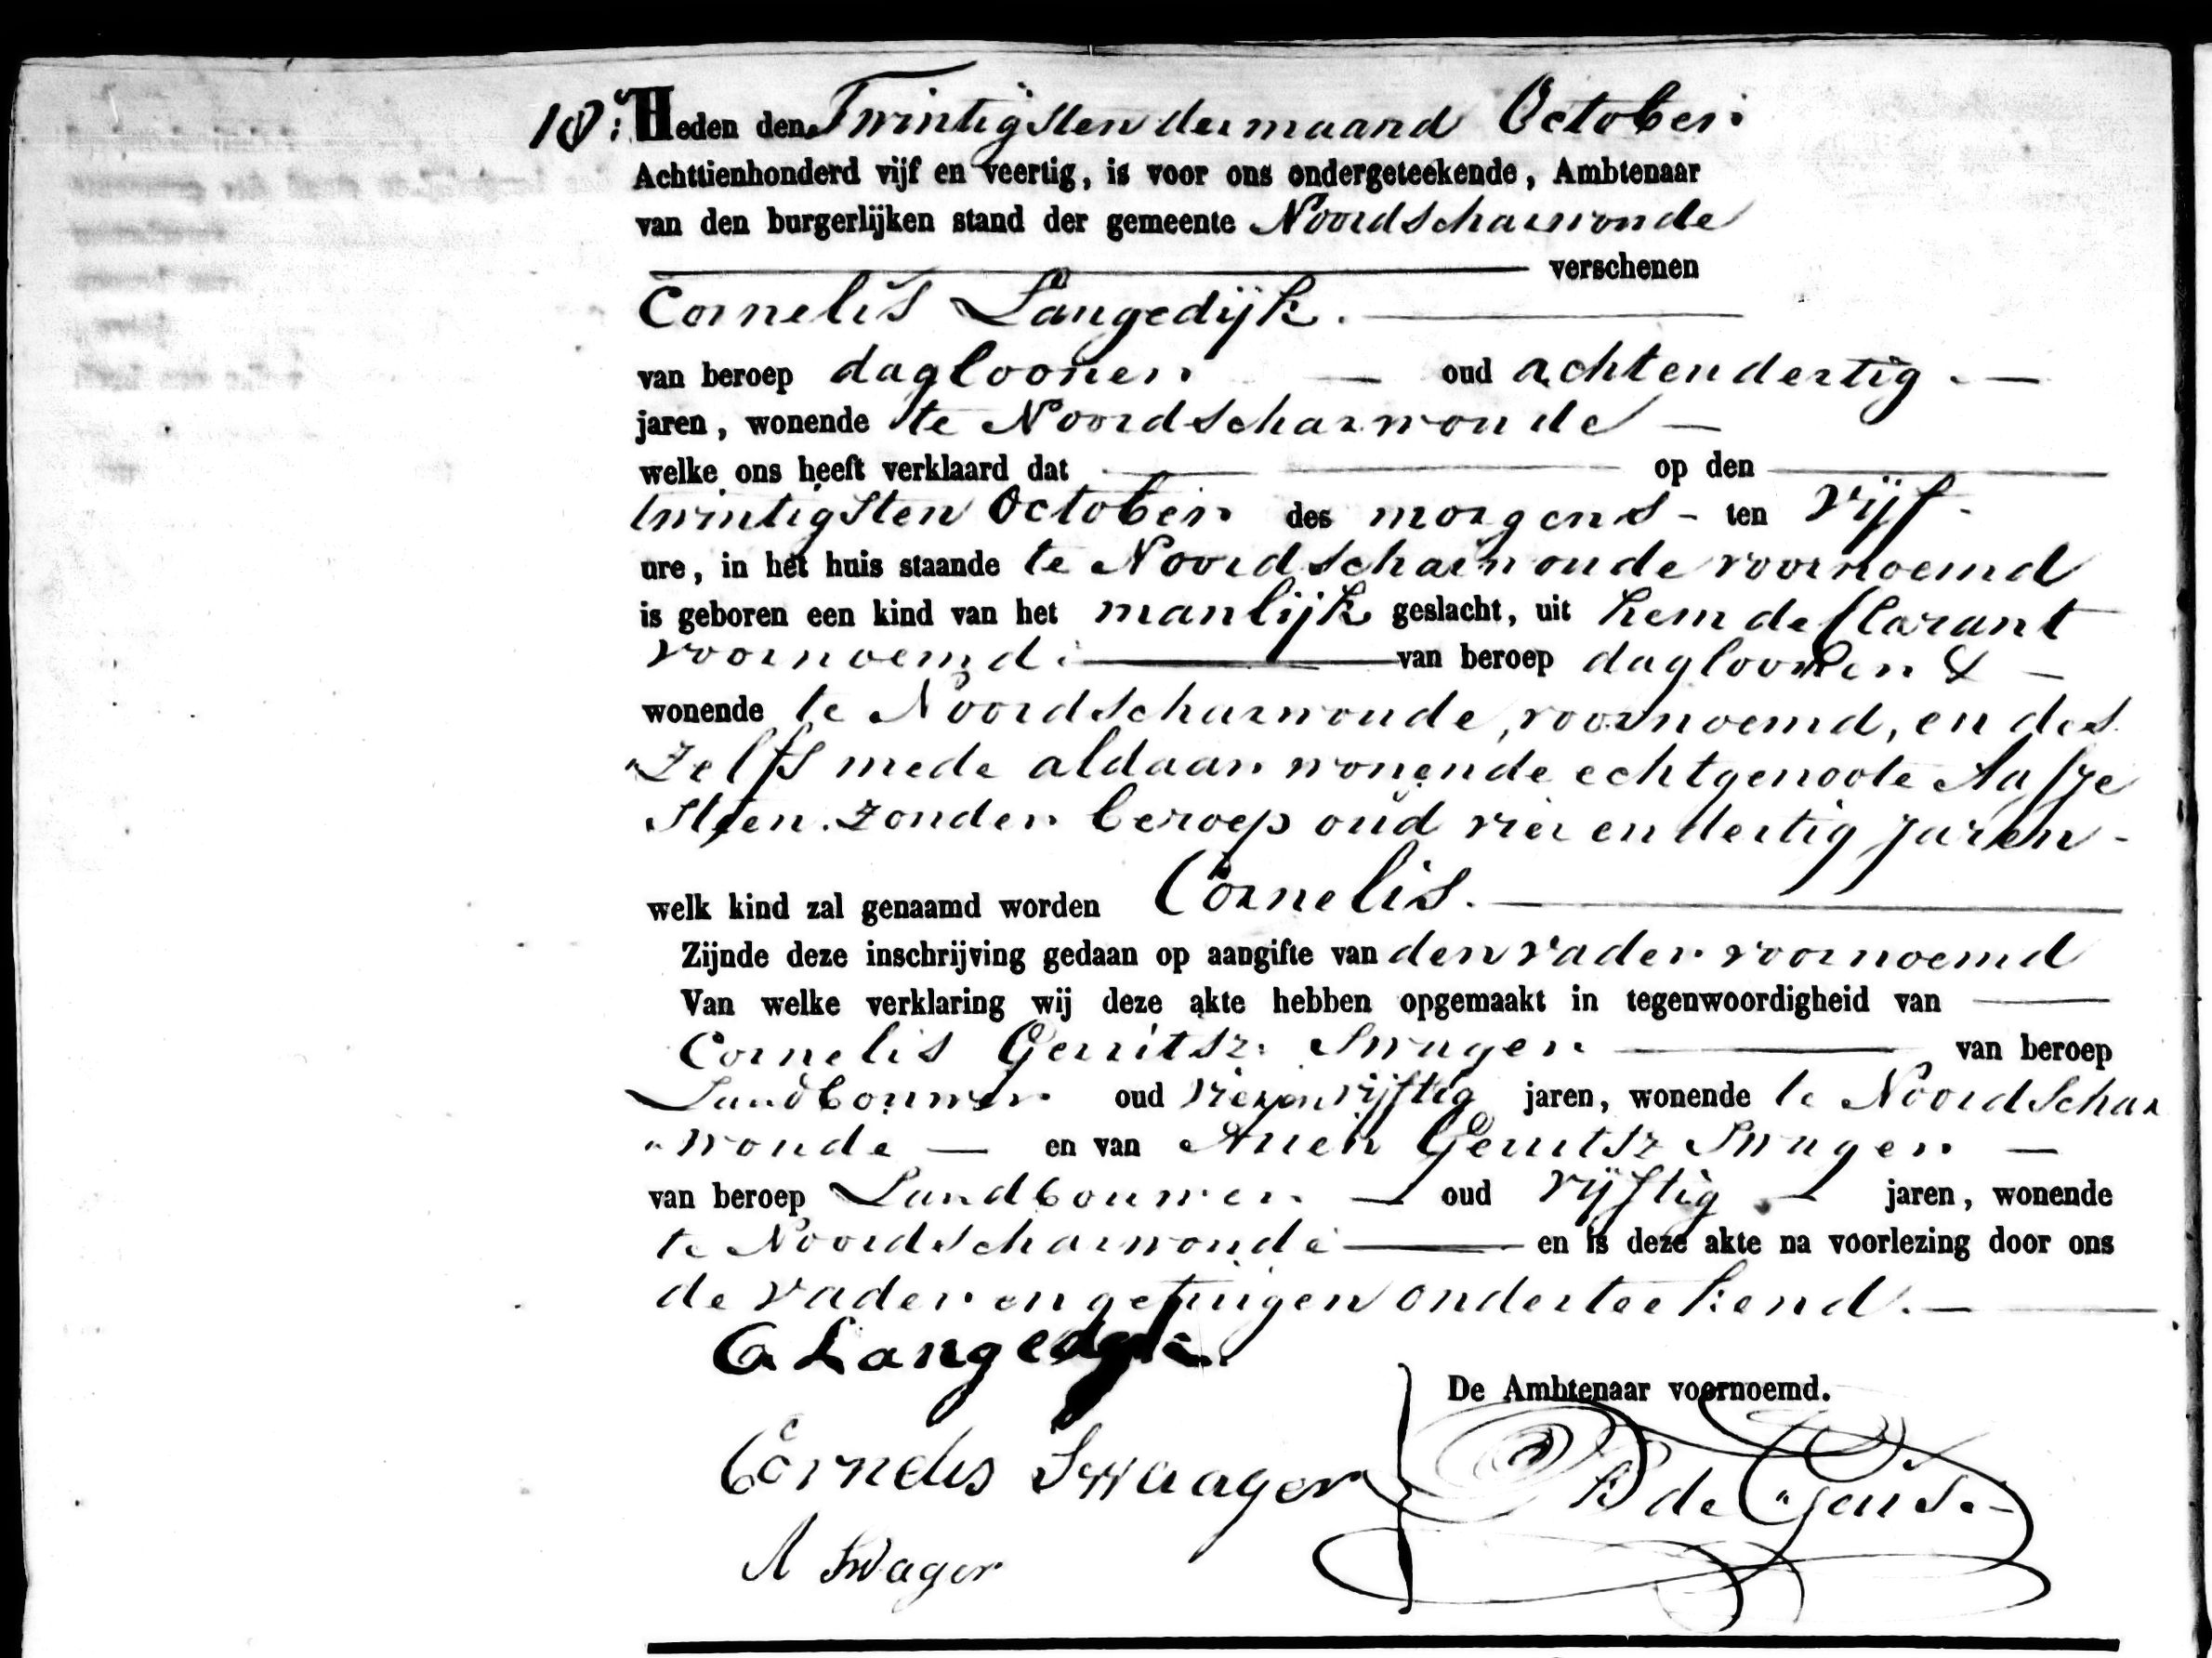 18: Heden den Twintigsten der maand October
Achttienhonderd vijf en veertig, is voor ons ondergeteekende, Ambtenaar
van den burgerlijken stand der gemeente Noordscharwoude
verschenen
Cornelis Langedijk.
van beroep daglooner oud achtendertig
jaren, wonende te Noordscharwoude
welke ons heeft verklaard dat op den
twintigsten October des morgens ten vijf
ure, in het huis staande te Noordscharwoude voornoemd
is geboren een kind van het manlijk geslacht, uit hem declarant
voornoemd van beroep daglooner &
wonende te Noordscharwoude, voornoemd, en des
zelfs mede aldaar wonende echtgenoote Aafje
Steen. zonder beroep oud vier en dertig jaren
welk kind zal genaamd worden Cornelis.
Zijnde deze inschrijving gedaan op aangifte van den vader voornoemd
Van welke verklaring wij deze akte hebben opgemaakt in tegenwoordigheid van
Cornelis Gerritsz: Swager van beroep
Landbouwer oud vijftig jaren, wonende te Noordschar
woude en van Arien Gerritsz Swager
van beroep Landbouwer oud vijftig jaren, wonende
te Noordscharwoude en is deze akte na voorlezing door ons
de vader en getuigen onderteekend.
C Langedijk
De Ambtenaar voornoemd.
Cornelis Swaager
de
A Swager